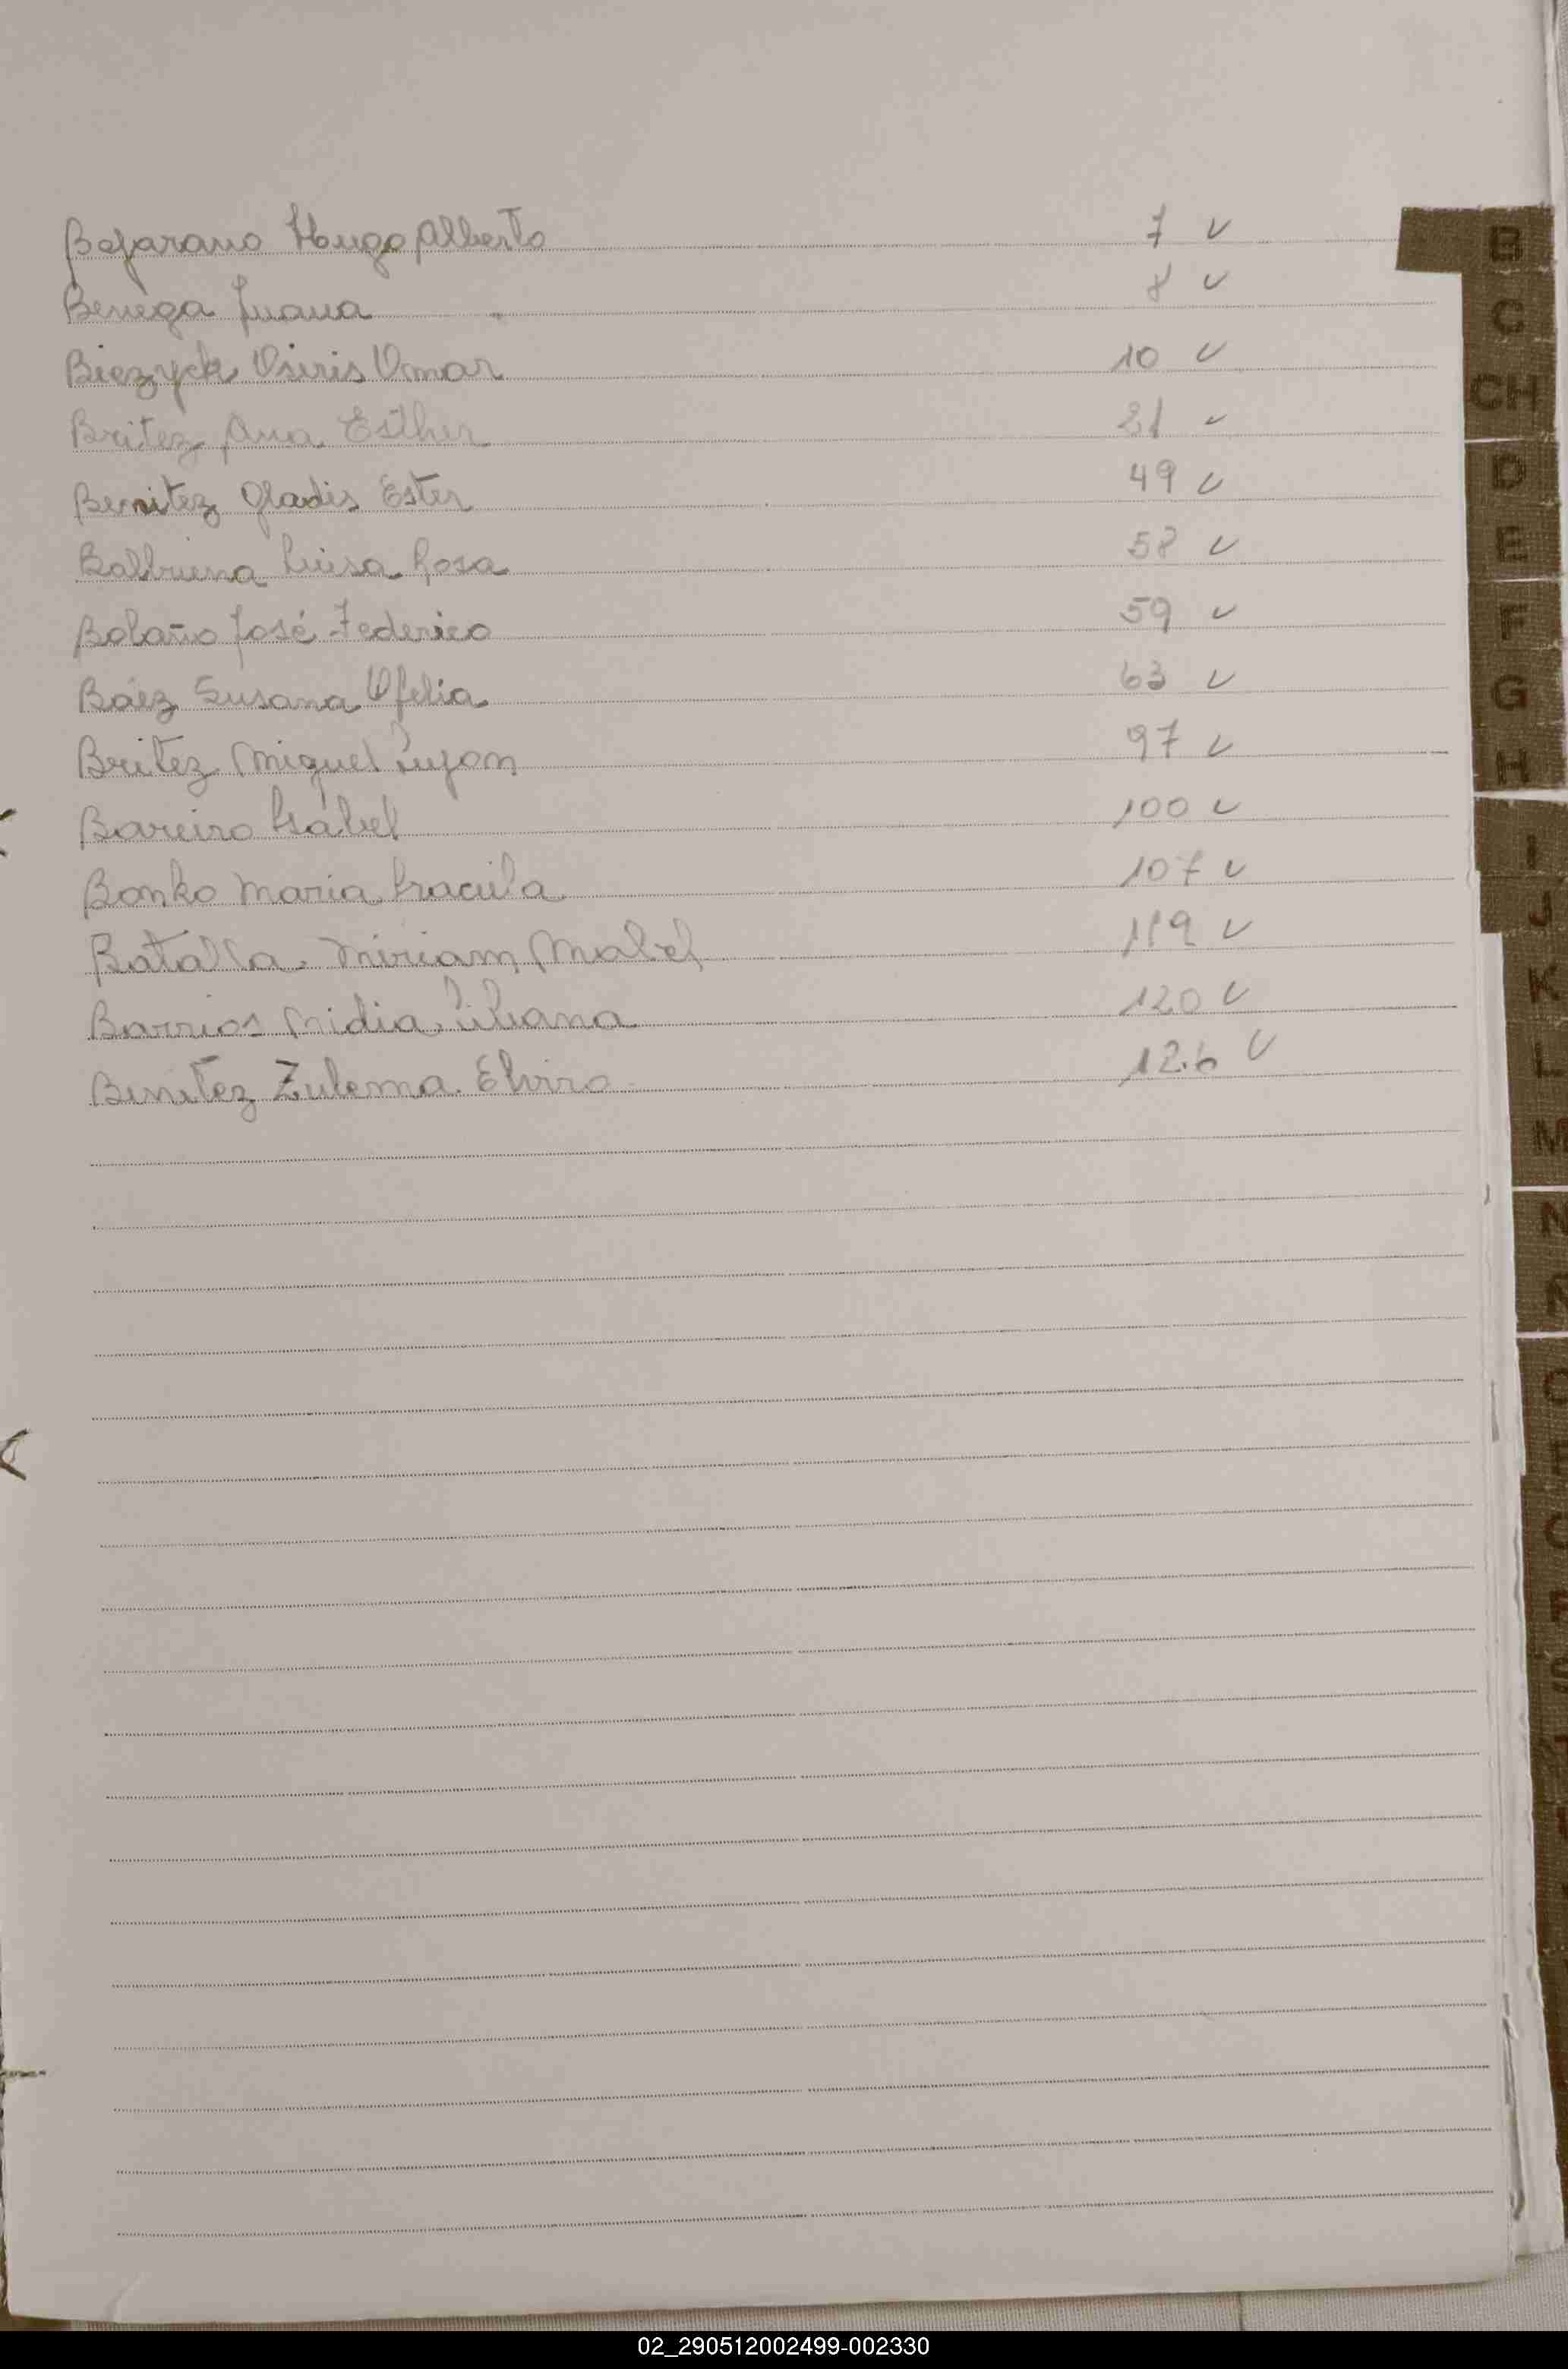 Bejarano Hugo Alberto 7 v
Benega Juana 8 v
Biezyck Osiris Omar 10 v
Britez Ana Esther 21 v
Benitez Gladis Ester 49 v
Balbuena Luisa Rosa 58 v
Bolaño José Federico 59 v
Báez Susana Ofelia 63 v
Britez Miguel Lujon 97 v
Bareiro Isabel 100 v
Bonko Maria 107 v
Batalla Miriam Mabel 119 v
Barrios Nidia Liliana 120 v
Benitez Zulema Elvira 126 v
B
C
CH
D
E
F
G
H
I
J
K
L
M
N
02_290512002499-002330